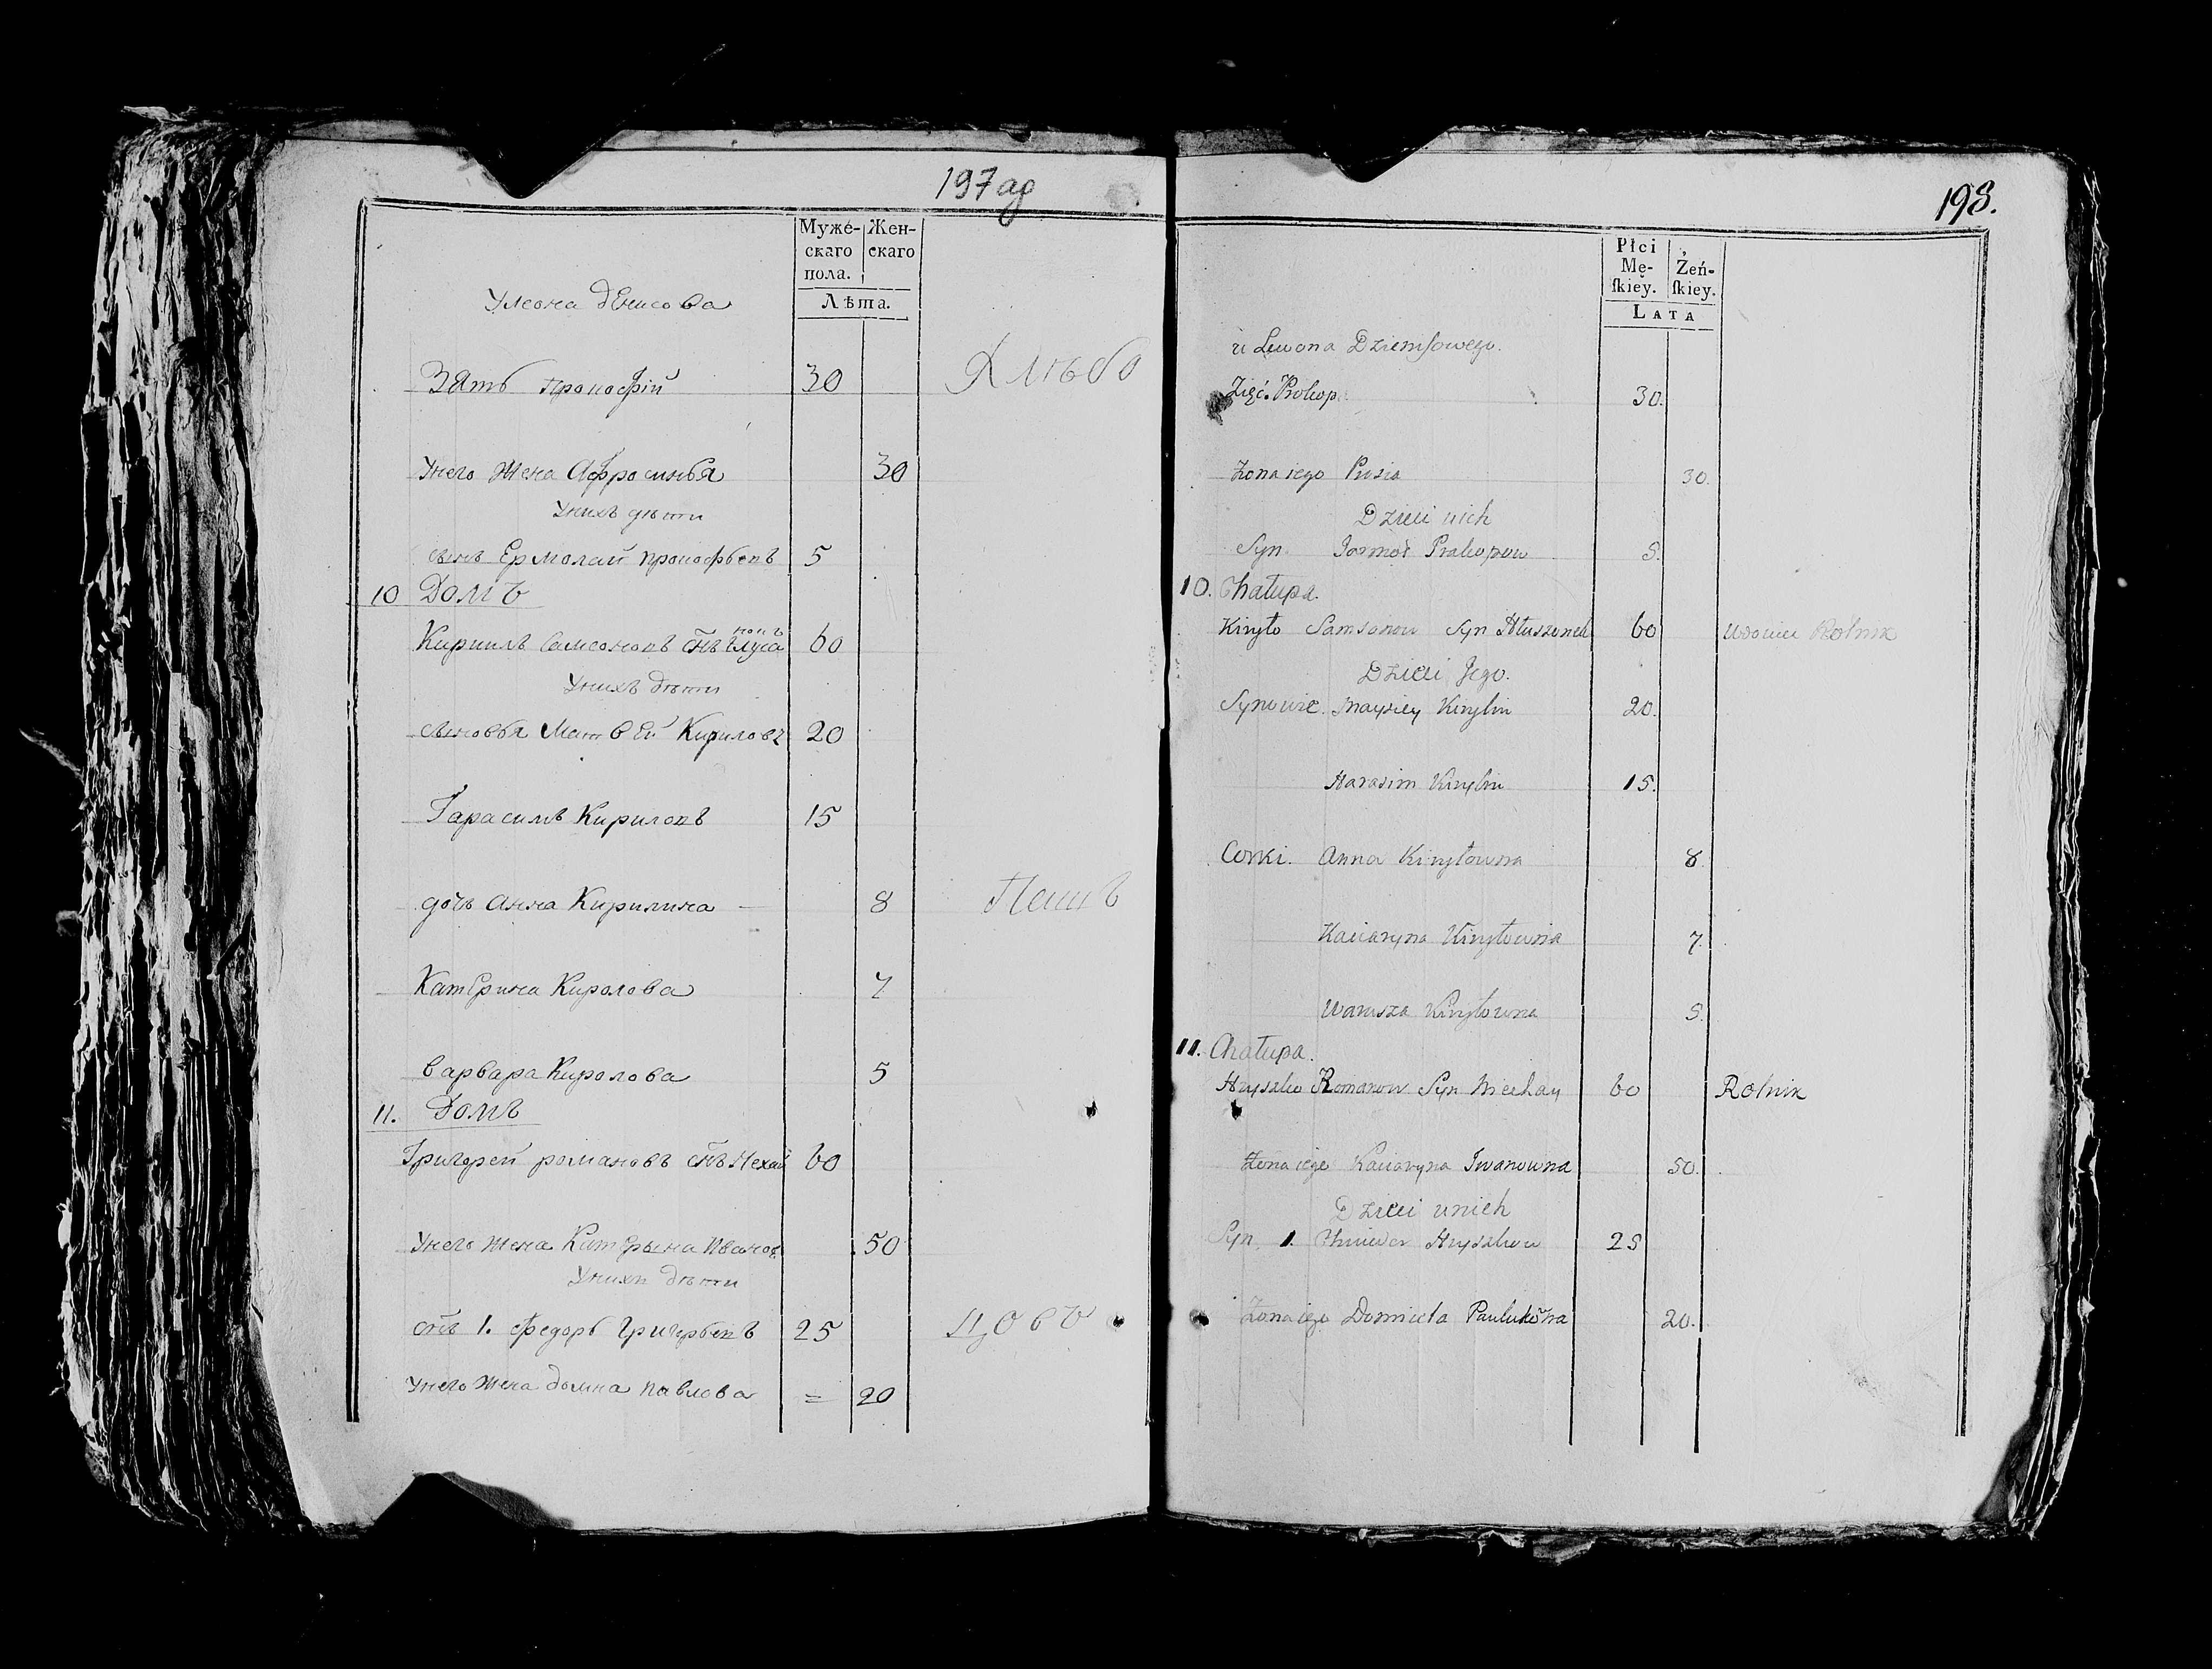 197 ад
Муже- Жен-
скаго скаго
пола.
Лѣта.
У Леона дЕнисова
Зять прокофій 30 Хлѣбо
Унего Жена Афросинья 30
Унихъ дѣти
сынъ Ермолай прокофьевъ 5
10 Домъ
Кирилъ Самсоновъ снъ Глуса нокъ 60
Унихъ дѣти
сыновья МатвЕй Кириловъ 20
Гарасимъ Кириловъ 15
дочь анна Кирилина 8 Пашъ
КатЕрина Киролова 7
варвара Киролова 5
11. Домъ
Григорей романовъ снъ Мехай 60
Унего жена КатЕрына Иванов 50
Унихъ дѣти
снъ 1. Федоръ Григорьевъ 25 цовъ
Унего жена домна павлова = 20
198.
Płci Żeń-
Mę- skiey.
skiey.
LATA
u Lewona Dziemsowego.
Zięć. Prokop 30.
Zona iego Prusia 30.
Dzieci nich
Syn Jarmoł Prakopow 5.
10. Chałupa.
Kiryło Samsonow Syn Hłuszonek 60 Wdowiec Rolnik
Dzieci Jego.
Synowie. Maysiey Kirylin 20.
Harasim Kirylin 15.
Corki. Anna Kiryłowna 8
Kaciaryna Kiryłowna 7.
Warusza Kiryłowna 5.
11. Chałupa.
Hryszko Romanow Syn Miechay 60 Rolnik
Żona iego Kaciaryna Iwanowna 50.
Dzieci unich
Syn 1. Chwiedor Hryszkow 25
Zona iego Domicela Paulukowna 20.